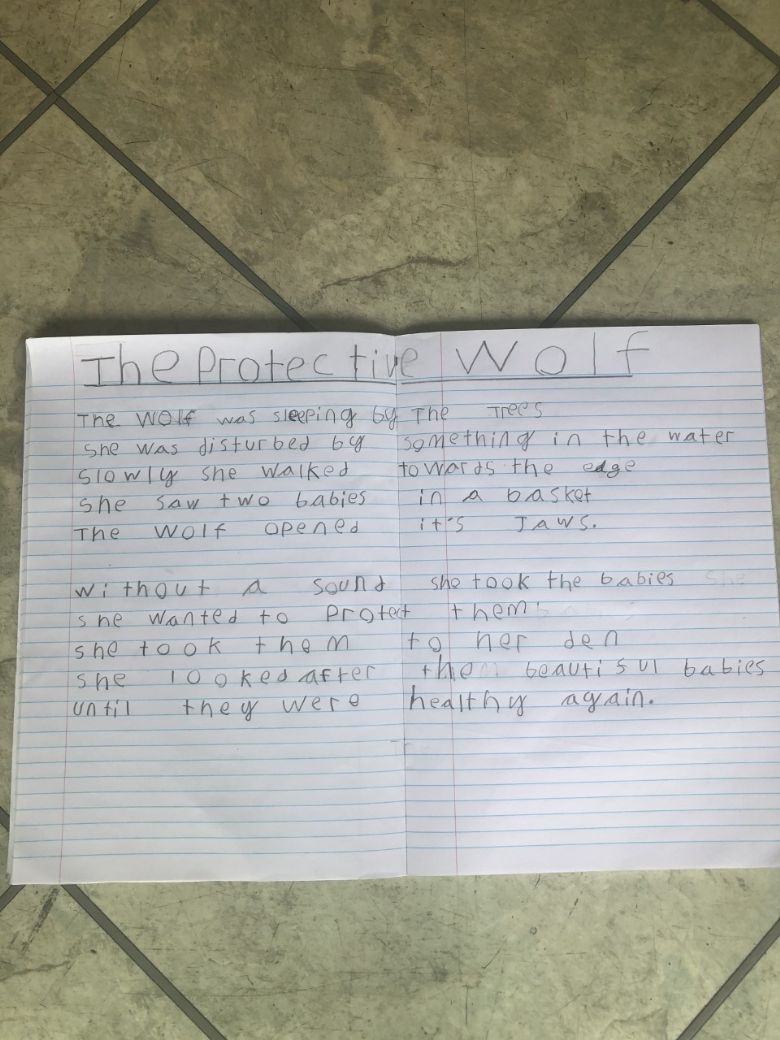 The Protective Wolf
The Wolf was sleeping by The Trees
she was disturbed by something in the water
Slowly she walked towards the edge
she saw two babies in a basket
The Wolf opened it's Jaws.
Without a sound she took the babies she
she wanted to Protect them
she took them to her den
she looked after the beautisul babies
until they were healthy again.